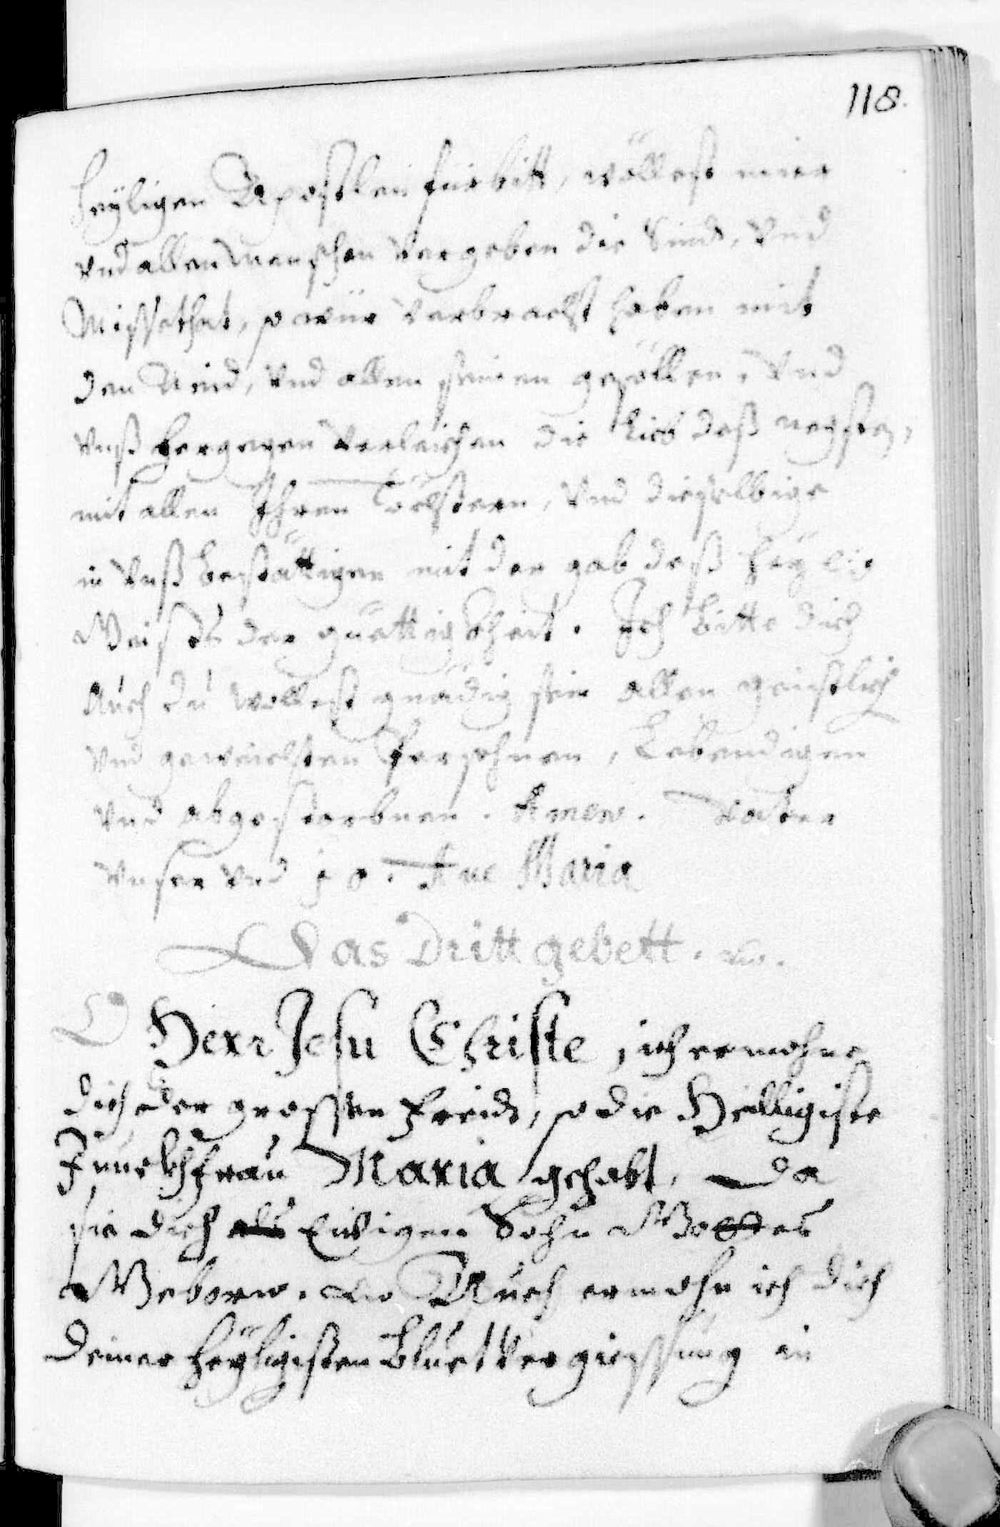 118.
heÿligen Apostlen fürbitt, wöllest mier
vnd allen menschen vergeben die Sind, vnd
Missethat, so wür verbracht haben mit
den Neid, vnd allen seinen gesöllen, vnd
vnß hergegen verleichen die lieb deß negsten,
mit allen Ihren Töchtern, vnd dieselbige
in vnß bestättigen mit der gab deß heÿlig
Geists der güettigkheit. Ich bitte dich
Auch du wollest gnädig sein allen geistlich
vnd geweichten Persohnen, Lebendigen
vnd abgestorbnen. Amen. Vatter
vnser vnd 10. Aue Maria
Das Dritt gebett.
O Herr Jesu Christe, ich ermohne
dich der grossen Freid, so die Heilligiste
Junckhfrau Maria gehabt, Da
sie dich als Ewigen Sohn Gottes
Geborn. Auch ermohn ich dich
deiner heÿligisten bluetvergiessung in